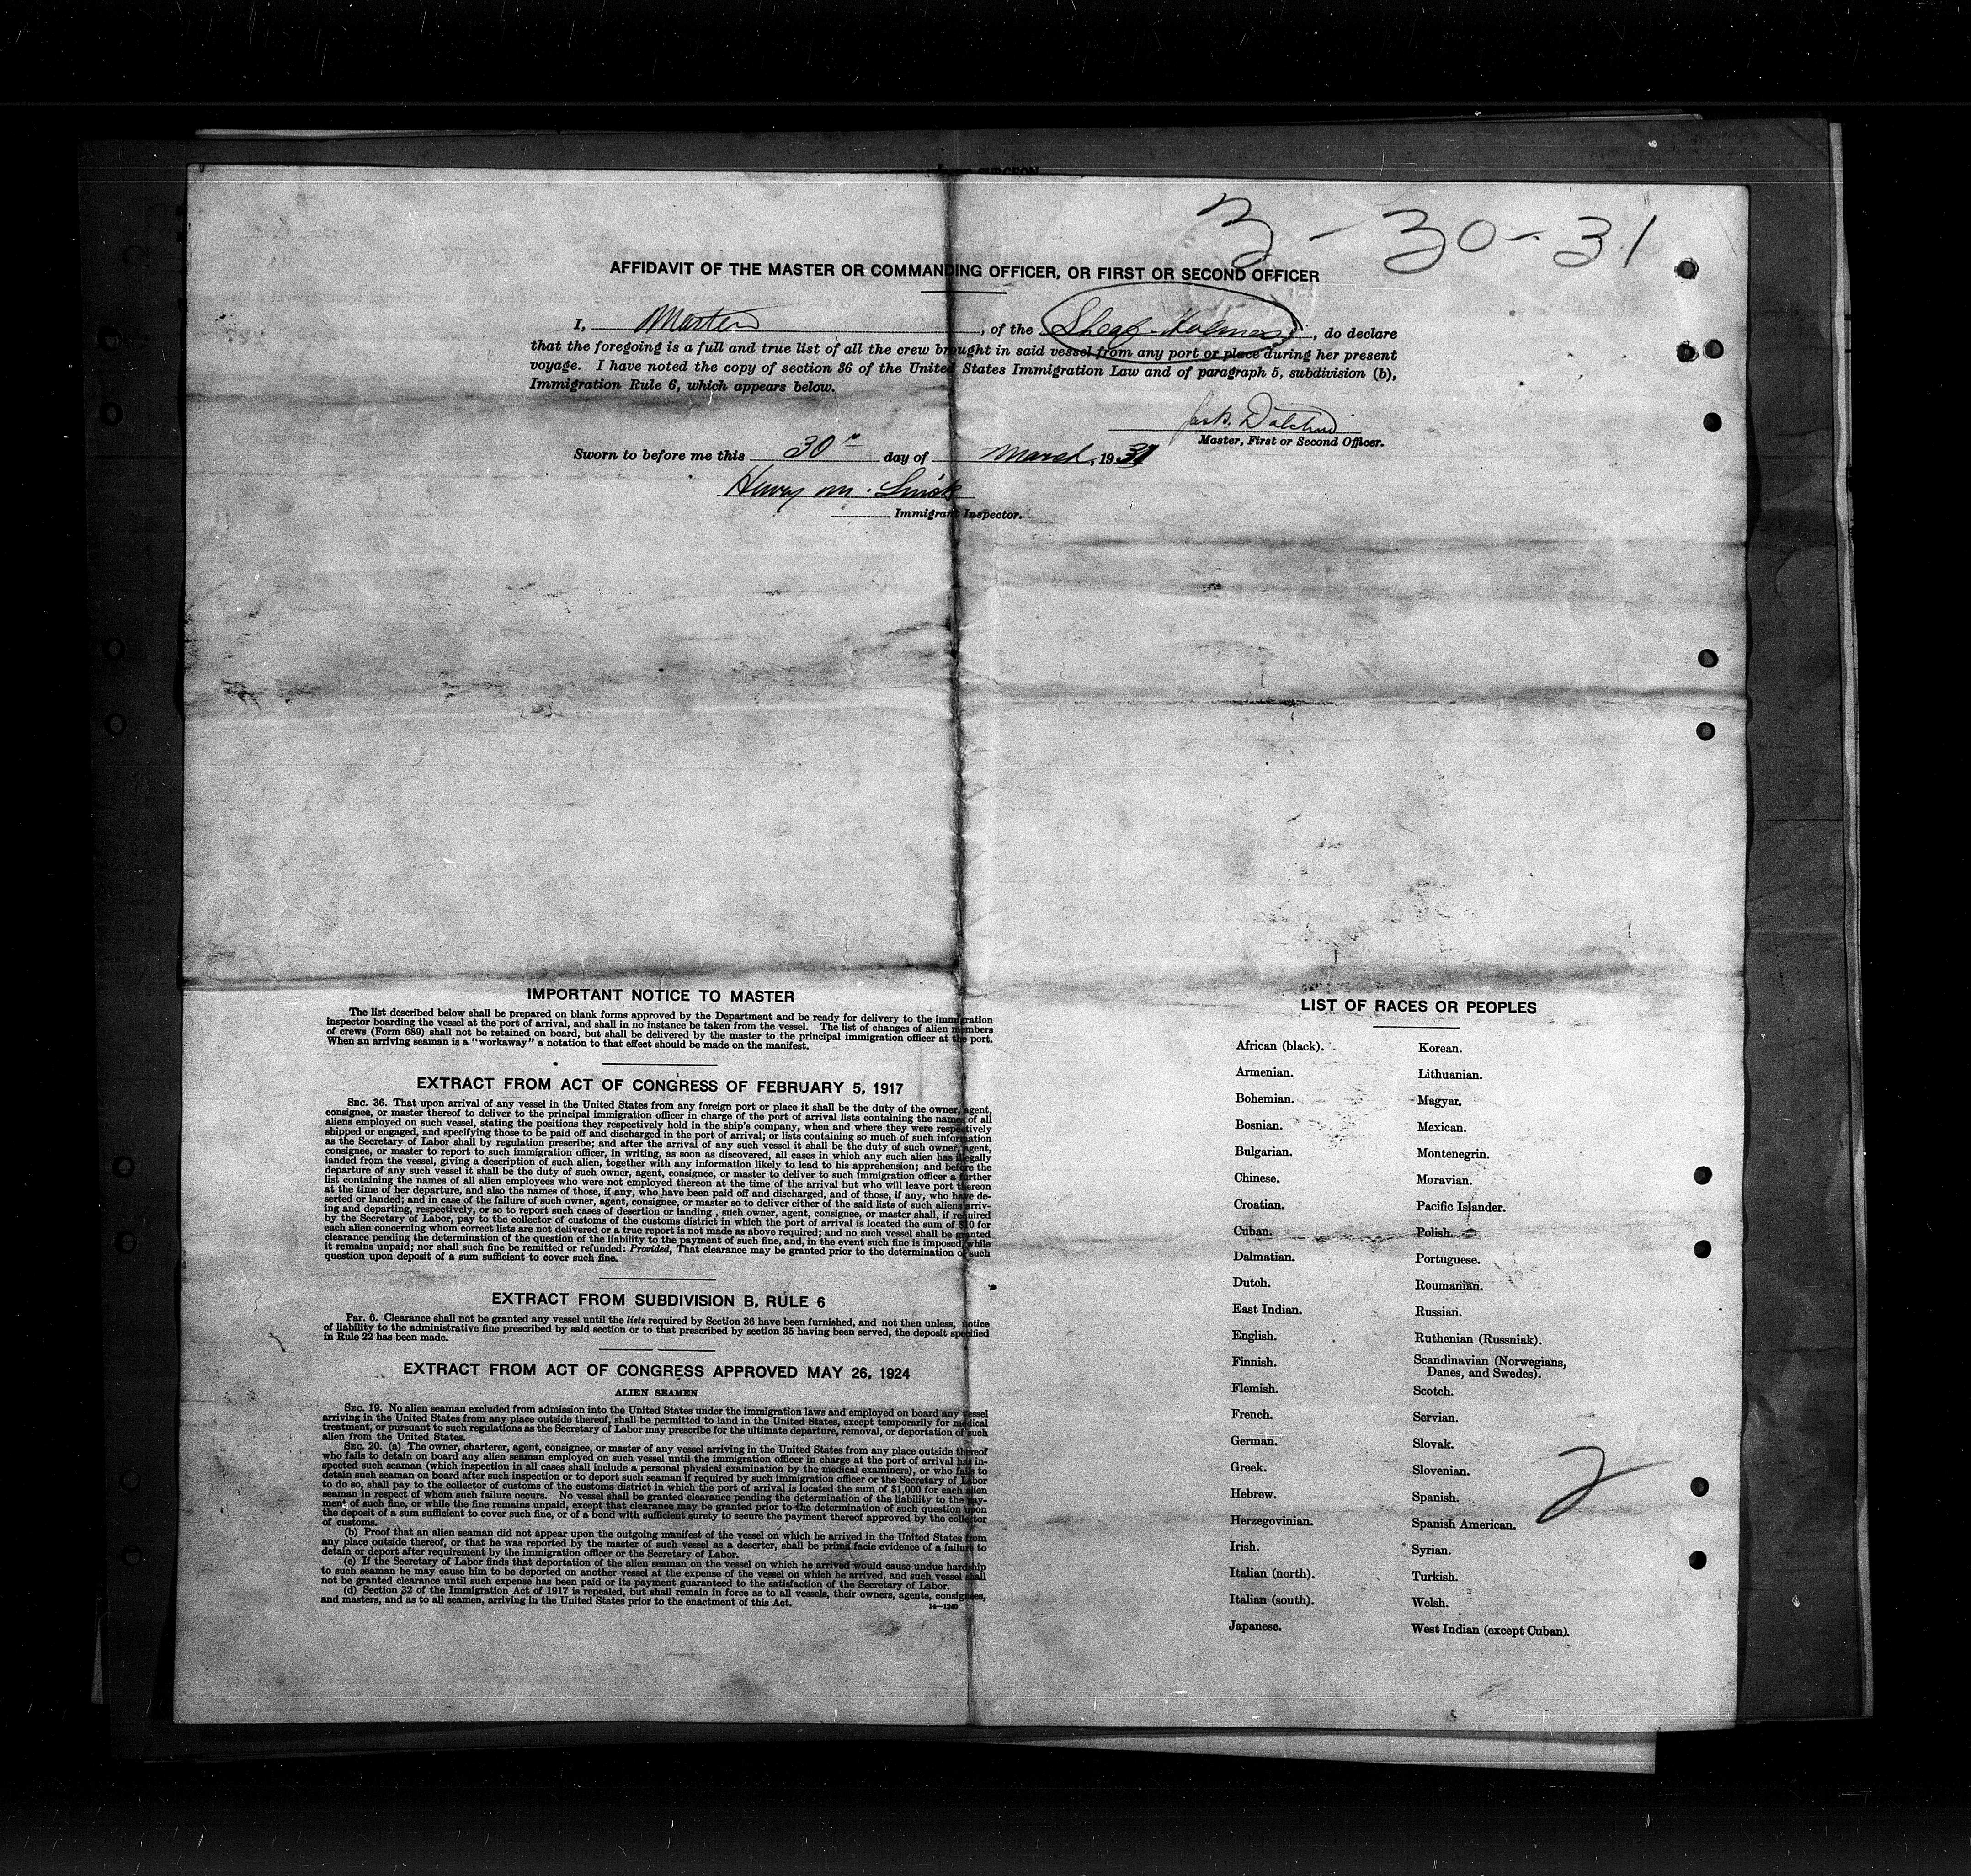 SURGEON
3-30-31
AFFIDAVIT OF THE MASTER OR COMMANDING OFFICER, OR FIRST OR SECOND OFFICER
I, Master, of the Sheaf Holme, do declare
that the foregoing is a full and true list of all the crew brought in said vessel from any port or place during her present
voyage. I have noted the copy of section 36 of the United States Immigration Law and of paragraph 5, subdivision (b),
Immigration Rule 6, which appears below.
Master, First or Second Officer.
Sworn to before me this 30th day of March, 1931
Henry M.
Immigrant Inspector.
IMPORTANT NOTICE TO MASTER
The list described below shall be prepared on blank forms approved by the Department and be ready for delivery to the immigration
inspector boarding the vessel at the port of arrival, and shall in no instance be taken from the vessel. The list of changes of alien members
of crews (Form 689) shall not be retained on board, but shall be delivered by the master to the principal immigration officer at the port.
When an arriving seaman is a "workaway" a notation to that effect should be made on the manifest.
EXTRACT FROM ACT OF CONGRESS OF FEBRUARY 5, 1917
SEC. 36. That upon arrival of any vessel in the United States from any foreign port or place it shall be the duty of the owner, agent,
consignee, or master thereof to deliver to the principal immigration officer in charge of the port of arrival lists containing the names of all
aliens employed on such vessel, stating the positions they respectively hold in the ship's company, when and where they were respectively
shipped or engaged, and specifying those to be paid off and discharged in the port of arrival; or lists containing so much of such information
as the Secretary of Labor shall by regulation prescribe; and after the arrival of any such vessel it shall be the duty of such owner, agent,
consignee, or master to report to such immigration officer, in writing, as soon as discovered, all cases in which any such alien has illegally
landed from the vessel, giving a description of such alien, together with any information likely to lead to his apprehension; and before the
departure of any such vessel it shall be the duty of such owner, agent, consignee, or master to deliver to such immigration officer a further
list containing the names of all alien employees who were not employed thereon at the time of the arrival but who will leave port thereon
at the time of her departure, and also the names of those, if any, who have been paid off and discharged, and of those, if any, who have de-
serted or landed; and in case of the failure of such owner, agent, consignee, or master so to deliver either of the said lists of such aliens arriv-
ing and departing, respectively, or so to report such cases of desertion or landing , such owner, agent, consignee, or master shall, if required
by the Secretary of Labor, pay to the collector of customs of the customs district in which the port of arrival is located the sum of $10 for
each alien concerning whom correct lists are not delivered or a true report is not made as above required; and no such vessel shall be granted
clearance pending the determination of the question of the liability to the payment of such fine, and, in the event such fine is imposed, while
it remains unpaid; nor shall such fine be remitted or refunded: Provided, That clearance may be granted prior to the determination of such
question upon deposit of a sum sufficient to cover such fine.
EXTRACT FROM SUBDIVISION B, RULE 6
PAR. 6. Clearance shall not be granted any vessel until the lists required by Section 36 have been furnished, and not then unless, notice
of liability to the administrative fine prescribed by said section or to that prescribed by section 35 having been served, the deposit specified
in Rule 22 has been made.
EXTRACT FROM ACT OF CONGRESS APPROVED MAY 26, 1924
ALIEN SEAMEN
SEC. 19. No alien seaman excluded from admission into the United States under the immigration laws and employed on board any vessel
arriving in the United States from any place outside thereof, shall be permitted to land in the United States, except temporarily for medical
treatment, or pursuant to such regulations as the Secretary of Labor may prescribe for the ultimate departure, removal, or deportation of such
alien from the United States.
SEC. 20. (a) The owner, charterer, agent, consignee, or master of any vessel arriving in the United States from any place outside thereof
who fails to detain on board any alien seaman employed on such vessel until the immigration officer in charge at the port of arrival has in-
spected such seaman (which inspection in all cases shall include a personal physical examination by the medical examiners), or who fails to
detain such seaman on board after such inspection or to deport such seaman if required by such immigration officer or the Secretary of Labor
to do so, shall pay to the collector of customs of the customs district in which the port of arrival is located the sum of $1,000 for each alien
seaman in respect of whom such failure occurs. No vessel shall be granted clearance pending the determination of the liability to the pay-
ment of such fine, or while the fine remains unpaid, except that clearance may be granted prior to the determination of such question upon
the deposit of a sum sufficient to cover such fine, or of a bond with sufficient surety to secure the payment thereof approved by the collector
of customs.
(b) Proof that an alien seaman did not appear upon the outgoing manifest of the vessel on which he arrived in the United States from
any place outside thereof, or that he was reported by the master of such vessel as a deserter, shall be prima facie evidence of a failure to
detain or deport after requirement by the immigration officer or the Secretary of Labor.
(c) If the Secretary of Labor finds that deportation of the alien seaman on the vessel on which he arrived would cause undue hardship
to such seaman he may cause him to be deported on another vessel at the expense of the vessel on which he arrived, and such vessel shall
not be granted clearance until such expense has been paid or its payment guaranteed to the satisfaction of the Secretary of Labor.
(d) Section 32 of the Immigration Act of 1917 is repealed, but shall remain in force as to all vessels, their owners, agents, consignees,
and masters, and as to all seamen, arriving in the United States prior to the enactment of this Act.
14—1240
LIST OF RACES OR PEOPLES
African (black).
Armenian.
Bohemian.
Bosnian.
Bulgarian.
Chinese.
Croatian.
Cuban.
Dalmatian.
Dutch.
East Indian.
English.
Finnish.
Flemish.
French.
German.
Greek.
Hebrew.
Herzegovinian.
Irish.
Italian (north).
Italian (south).
Japanese.
Korean.
Lithuanian.
Magyar.
Mexican.
Montenegrin.
Moravian.
Pacific Islander.
Polish.
Portuguese.
Roumanian.
Russian.
Ruthenian (Russniak).
Scandinavian (Norwegians,
Danes, and Swedes).
Scotch.
Servian.
Slovak.
Slovenian.
Spanish.
Spanish American.
Syrian.
Turkish.
Welsh.
West Indian (except Cuban).
2